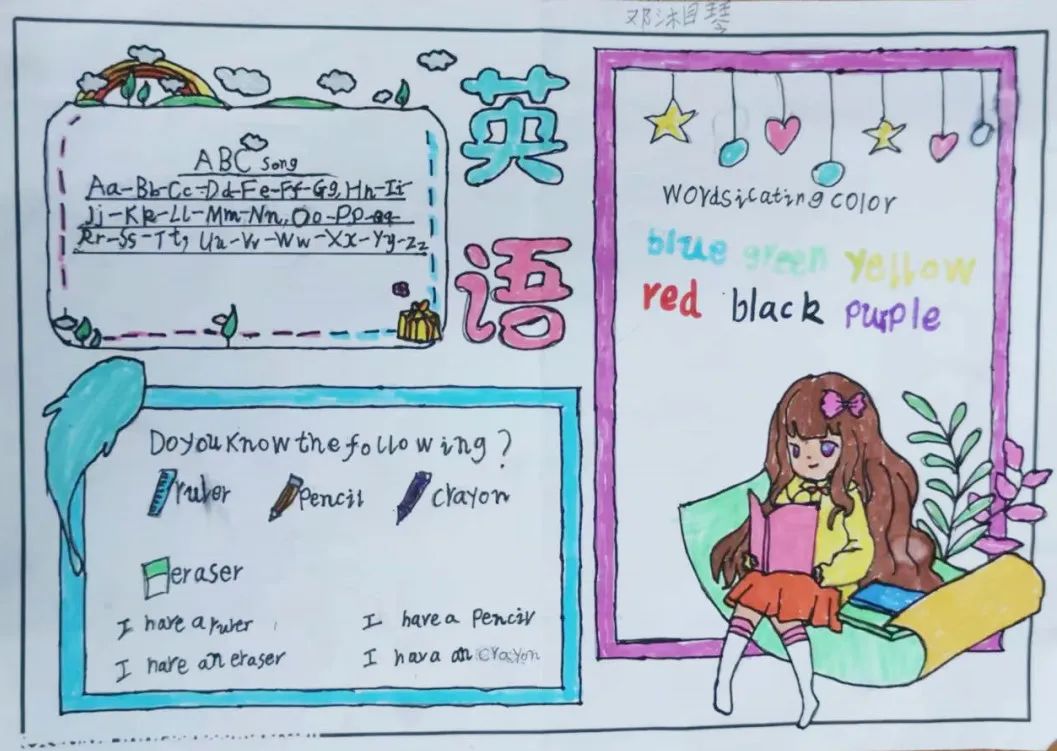 邓沐相琴
ABC song
Aa-Bb-Cc-Dd-Ee-Ff-Gg, Hh-Ii
Jj-Kk-Ll-Mm-Nn, Oo-Pp-qq
Rr-Ss-Tt, Uu-Vv-Ww-Xx-Yy-Zz
英
语
Words icating color
blue green yellow
red black purple
Do you know the following?
ruler pencil crayon
eraser
I have a ruler I have a pencil
I have an eraser I hava an crayon